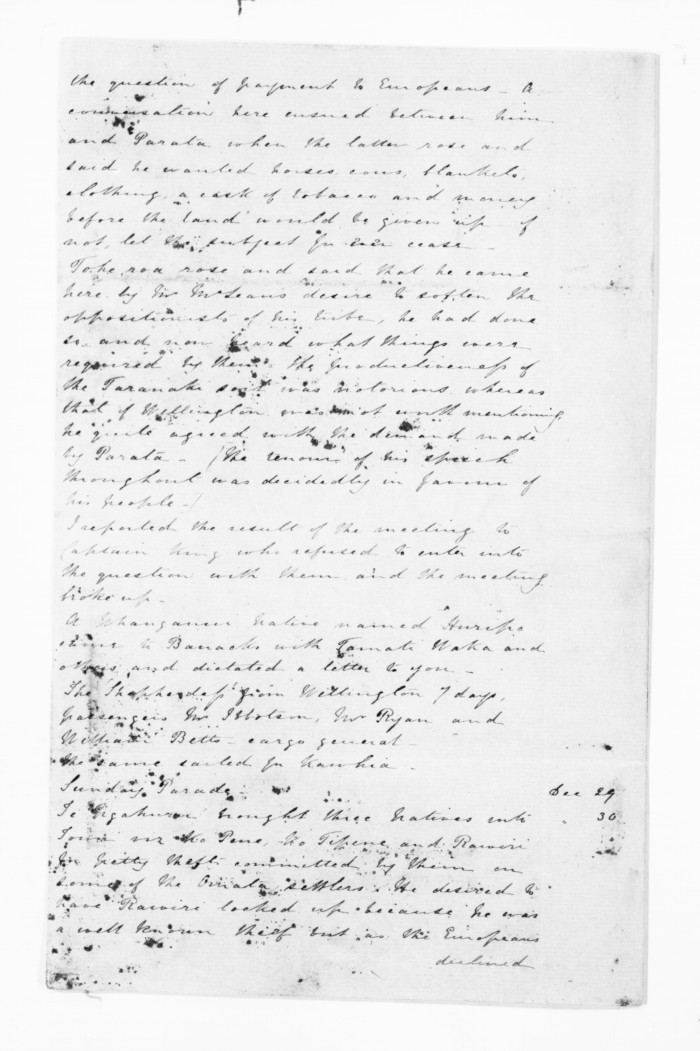 the question of payment to Europeans - A
conversation here ensued between him
and Parata when the latter rose and
said he wanted horses, cows, blankets,
clothing, a cask of tobacco and money
before the land would be given up - if
not, let the subject for ever cease -
Tohe roa rose and said that he came
here by Mr McLeans desire to soften the
oppositionists of his tribe, he had done
so and now heard what things were
required by them. The productiveness of
the Taranaki soil was notorious, whereas
that of Wellington was not worth mentioning,
he quite agreed with the demand made
by Parata - (The tenour of his speech
throughout was decidedly in favour of
his people -)
I reported the result of the meeting to
Captain King who refused to enter into
the question with them and the meeting
broke up -
A Whanganui Native named Huripo
came to Barracks with Tamati Waka and
others and dictated a letter to you -
The Shepherdess from Wellington 7 days,
passengers Mr Ibbotson, Mr Ryan and
William Betts - cargo general -
the same sailed for Kawhia -
Sunday Parade - Dec 29
Te Ngahuru brought three Natives into " 30
Town viz Ko Pene, Ko Tipene and Rawiri
for petty thefts committed by them on
some of the Omata settlers. He desired to
have Rawiri locked up because he was
a well known thief but as the Europeans
declined